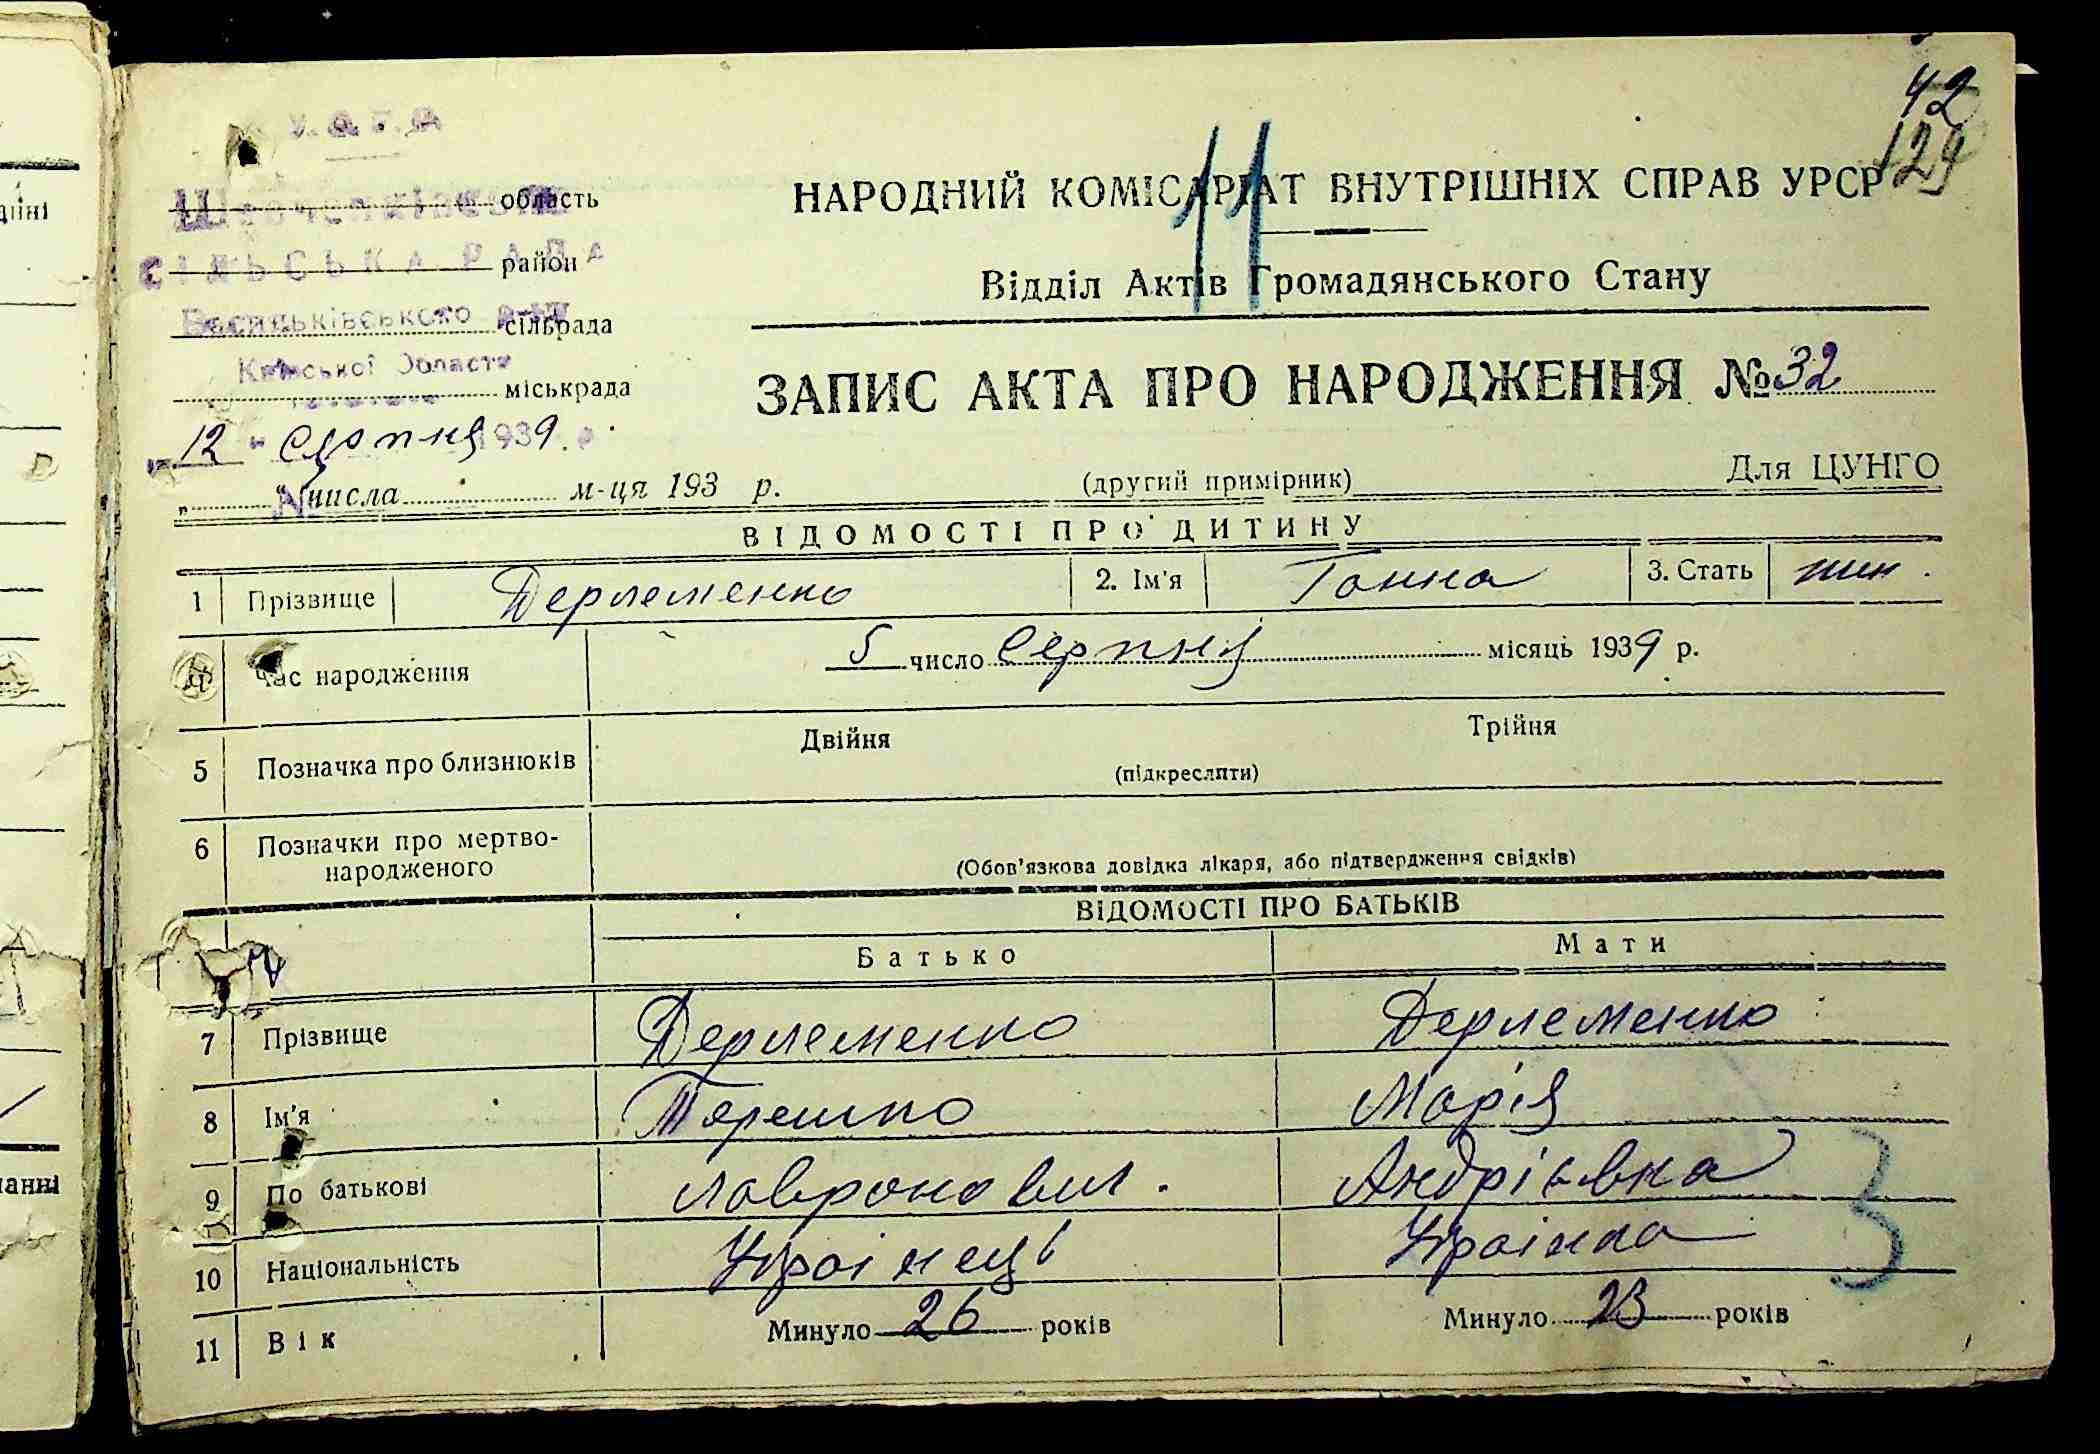 У.С.Р.Р.
42
129
Шевченківська область
НАРОДНИЙ КОМІСАРІАТ ВНУТРІШНІХ СПРАВ УРСР
11
СІЛЬСЬКА РАДА район
Відділ Актів Громадянського Стану
Васильківського р-ну сільрада
Київської Області
міськрада
ЗАПИС АКТА ПРО НАРОДЖЕННЯ № 32
"12" Серпня 1939 р.
№
"......" числа ............ м-ця 193 р.
(другий примірник)
Для ЦУНГО
ВІДОМОСТІ ПРО ДИТИНУ
1 Прізвище Дерлеменко 2. Ім'я Ганна 3. Стать жін.
4 Час народження 5 число Серпня місяць 1939 р.
5 Позначка про близнюків Двійня Трійня
(підкреслити)
6 Позначки про мертво-
народженого
(Обов'язкова довідка лікаря, або підтвердження свідків)
ВІДОМОСТІ ПРО БАТЬКІВ
Батько Мати
7 Прізвище Дерлеменко Дерлеменко
8 Ім'я Терешко Марія
9 По батькові Лавронович. Андріївна
10 Національність Українець Українка
3
11 Вік Минуло 26 років Минуло 23 років